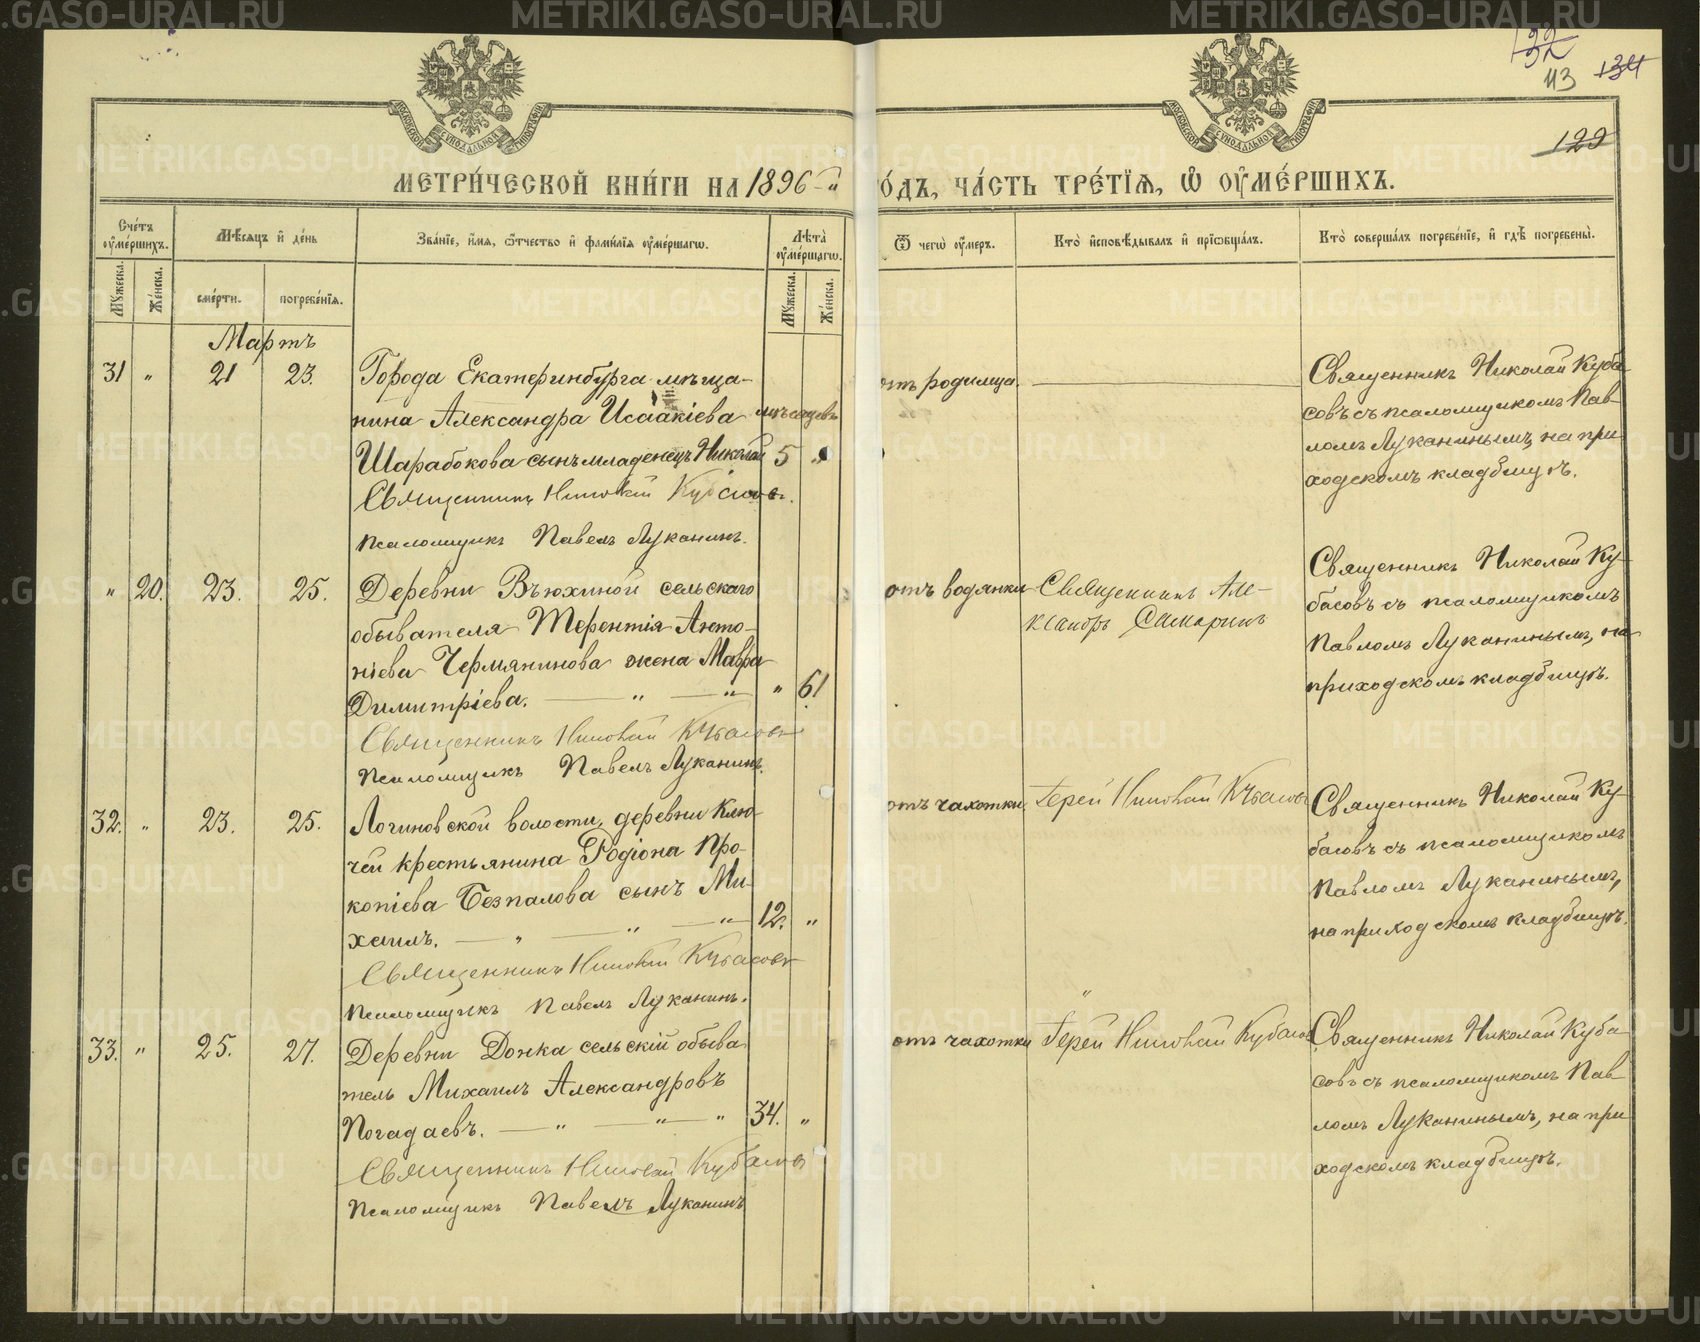 122
43 134
129
МЕТРИЧЕСКОЙ КНИГИ НА 1896-й ГОДЪ, ЧАСТЬ ТРЕТІЯ, Ѽ ОУМЕРШИХЪ.
Счетъ оумершихъ.
Мѣсяцъ и день
Званіе, имя, ѿчество и фамилія оумершагѡ.
Лѣта оумершагѡ.
Ѿ чегѡ оумеръ.
Кто исповѣдывалъ и пріѡбщалъ.
Кто совершалъ погребеніе, и гдѣ погребены.
Мꙋжеска.
Женска.
смерти.
погребенія.
Мꙋжеска.
Женска.
Мартъ
31 " 21 23.
Города Екатеринбурга мѣща-
нина Александра Исаакіева мѣсяцевъ
Шарабокова сынъ младенецъ Николай 5 "
Священникъ Николай Кубасовъ.
Псаломщикъ Павелъ Луканинъ.
отъ родимца.
Священникъ Николай Куба
совъ съ псаломщикомъ Пав-
ломъ Луканинымъ, на при
ходскомъ кладбищѣ.
" 20. 23. 25.
Деревни Вьюхиной сельскаго
обывателя Терентія Анто-
ніева Чермянинова жена Мавра
Димитріева. " " " 61.
Священникъ Николай Кубасовъ
Псаломщикъ Павелъ Луканинъ.
отъ водянки
Священникъ Але-
ксандръ Самаринъ
Священникъ Николай Ку-
басовъ съ псаломщикомъ
Павломъ Луканинымъ, на
приходскомъ кладбищѣ.
32. " 23. 25.
Логиновской волости, деревни Клю-
чей крестьянина Родіона Про-
копіева Безпалова сынъ Ми-
хаилъ. " " " 12. "
Священникъ Николай Кубасовъ
Псаломщикъ Павелъ Луканинъ.
отъ чахотки.
Іерей Николай Кубасовъ
Священникъ Николай Ку-
басовъ съ псаломщикомъ
Павломъ Луканинымъ,
на приходскомъ кладбищѣ.
33. " 25. 27.
Деревни Донка сельскій обыва
тель Михаилъ Александровъ
Погадаевъ. " " " 34. "
Священникъ Николай Кубасовъ
Псаломщикъ Павелъ Луканинъ
отъ чахотки
Іерей Николай Кубасовъ
Священникъ Николай Куба
совъ съ псаломщикомъ Пав-
ломъ Луканинымъ, на при
ходскомъ кладбищѣ.
METRIKI.GASO-URAL.RU